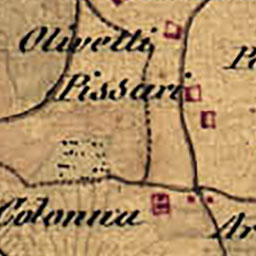 Olivetti
Pissari
Colonna